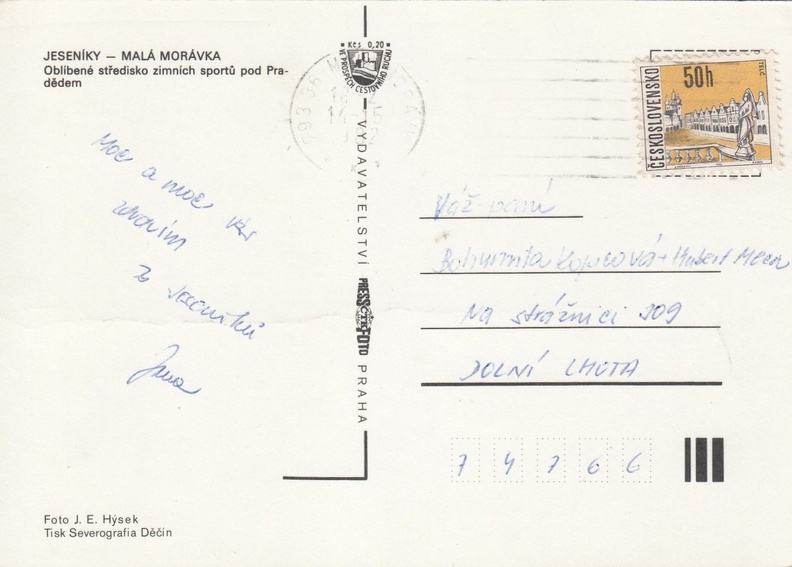 JESENÍKY — MALÁ MORÁVKA
Oblíbené středisko zimních sportů pod Pra-
dědem
Kčs 0,20
VE PROSPĚCH CESTOVNÍHO RUCHU
793 36
ČESKOSLOVENSKO
50h
TELČ
Moc a moc Vás
zdravím
z Jeseníků
Jana
VYDAVATELSTVÍ PRESSFOTO PRAHA
ČTK
Váž. paní
Bohumila Kopcová + Hubert
Na strážnici 309
DOLNÍ LHOTA
7 4 7 6 6
Foto J. E. Hýsek
Tisk Severografia Děčín